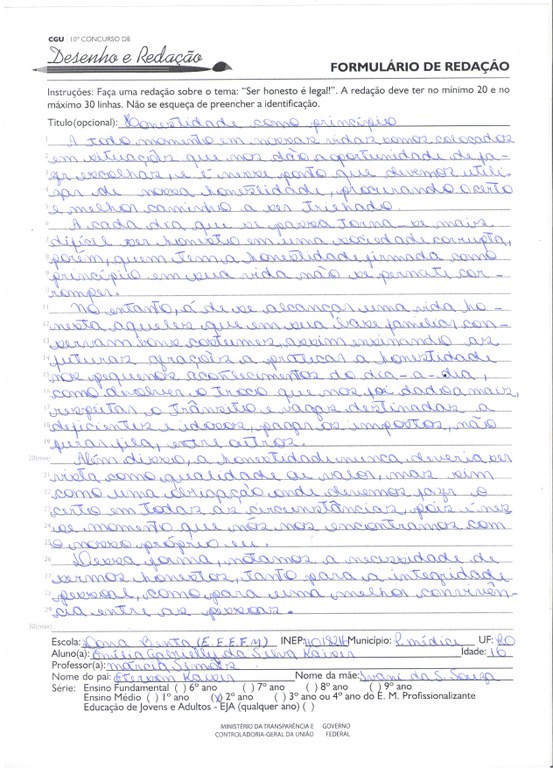 CGU | 10º CONCURSO DE
Desenho e Redação
FORMULÁRIO DE REDAÇÃO
Instruções: Faça uma redação sobre o tema: "Ser honesto é legal!". A redação deve ter no mínimo 20 e no
máximo 30 linhas. Não se esqueça de preencher a identificação.
Título(opcional): Honestidade como princípio
1 A todo momento em nossas vidas somos colocados
2 em situações que nos dão a oportunidade de fa-
3 zer escolhas, e é nesse ponto que devemos utili-
4 zar de nossa honestidade, procurando o certo
5 e melhor caminho a ser trilhado.
6 A cada dia que se passa torna-se mais
7 difícil ser honesto em uma sociedade corrupta,
8 porém, quem tem a honestidade firmada como
9 princípio em sua vida não se permiti cor-
10 romper.
11 No entanto, á de se alcançar uma vida ho-
12 nesta aqueles que em sua base familiar con-
13 servam bons costumes, assim ensinando as
14 futuras grações a praticar a honestidade
15 nos pequenos acontecimentos do dia-a-dia,
16 como devolver o troco que nos foi dado a mais,
17 respeitar o trânsito e vagas destinadas a
18 deficientes e idosos, pagar os impostos, não
19 furar fila, entre outros.
20(min) Além disso, a honestidade nunca deveria ser
21 vista como qualidade ou valor, mas sim
22 como uma obrigação onde devemos fazer o
23 certo em todas as circunstâncias, pois é nes
24 se momento que nós nos encontramos com
25 o nosso próprio eu.
26 Dessa forma, notamos a necessidade de
27 sermos honestos, tanto para a integridade
28 pessoal, como para uma melhor convivên-
29 cia entre as pessoas.
30(max)
Escola: Dona Benta (E.E.E.F.M) INEP: Município: P. médici UF: RO
Aluno(a): Emilia Gabrielly da Silva Idade: 16
Professor(a): márcia Simões
Nome do pai: Nome da mãe: Ivani da S. Souza
Série: Ensino Fundamental ( ) 6º ano ( ) 7º ano ( ) 8º ano ( ) 9º ano
Ensino Médio ( ) 1º ano (x) 2º ano ( ) 3º ano ou 4º ano do E. M. Profissionalizante
Educação de Jovens e Adultos - EJA (qualquer ano) ( )
MINISTÉRIO DA TRANSPARÊNCIA E GOVERNO
CONTROLADORIA-GERAL DA UNIÃO FEDERAL